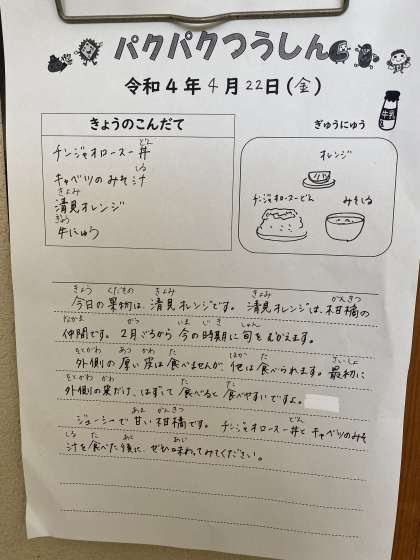 パクパクつうしん
令和4年4月22日(金)
きょうのこんだて
チンジャオロースー丼
キャベツのみそ汁
清見オレンジ
牛にゅう
ぎゅうにゅう
牛乳
オレンジ
チンジャオロースどん
みそしる
今日の果物は、清見オレンジです。清見オレンジは、柑橘の
仲間です。2月ごろから今の時期に旬をむかえます。
外側の厚い皮は食べませんが、他は食べられます。最初に
外側の皮だけ、はずして食べると食べやすいですよ。
ジューシーで甘い柑橘です。チンジャオロースー丼とキャベツのみそ
汁を食べた後に、ぜひ味わってみてください。